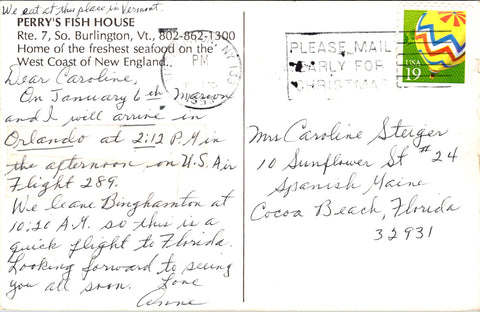 We eat at this place in Vermont.
PERRY'S FISH HOUSE
Rte. 7, So. Burlington, Vt., 802-862-1300
Home of the freshest seafood on the
West Coast of New England.
Dear Caroline,
On January 6th Marion
and I will arrive in
Orlando at 2:12 P.M in
the afternoon, on U.S. Air
Flight 289.
We leave Binghamton at
10:20 A.M. so this is a
quick flight to Florida.
Looking forward to seeing
you all soon. Love
Anne
NY
PM
PLEASE MAIL
EARLY FOR
CHRISTMAS
USA
19
Mrs Caroline Steiger
10 Sunflower St #24
Spanish Maine
Cocoa Beach, Florida
32931